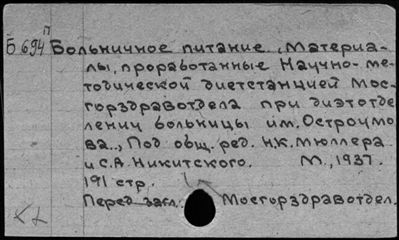 Б 694 п Больничное питание, Материа-
лы, проработанные Научно-ме-
тодической диетстанцией Мос-
горздравотдела при диэтотде
лении больницы им. Остроумо
ва., Под общ. ред. Н.К. Мюллера
и С.А. Никитского. М., 1937.
191 стр.
Перед загл. Мосгорздравотдел.